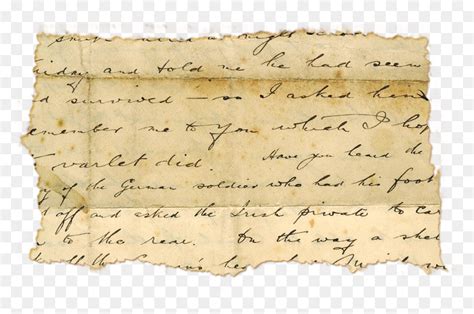 night
day and told me he had seen
d survived — so I asked him
member me to you which I hop
varlet did. Have you heard the
y of the German soldier who had his foot
t off and asked the Irish private to car
to the rear. On the way a shel
off the German's hea